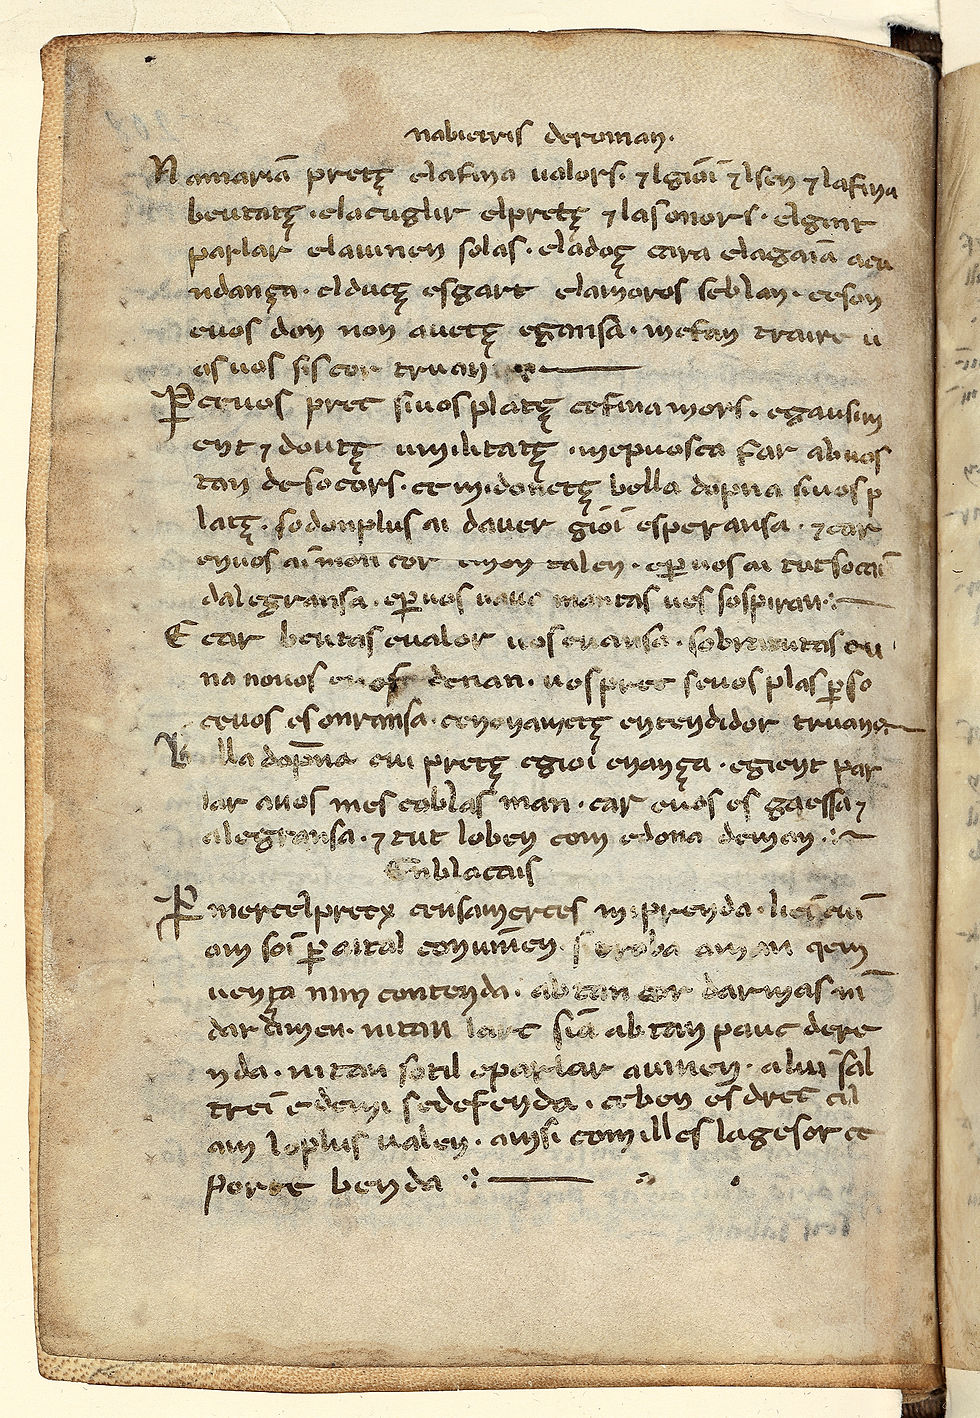 nabietris deroman.
Namariā pretꝫ elafina ualors. ⁊lgioi ⁊lsen ⁊lafina
beutatꝫ. elacuglir elpretꝫ ⁊lasonors. elgint
parlar elauinen solas. eladoç cara elagaiā acu
ndança. elducꝫ esgart elamoros seblan. ceson
euos don non auetꝫ egansa. mefan traire u
as uos sis cor truan
Ꝑ ceuos prec siuosplatꝫ cefinamors. egausim
ent ⁊ doutꝫ umilitatꝫ. mepuosca far abuos
tan desocors. ce mi donetꝫ bella dopna siuosp
latꝫ. so donplus ai dauer gioi esperansa. ⁊car
enuos ai mon cor emon talen. eꝑ uos ai tut so cū
dalegransa. eꝑ uos uauc mantas ues sospiran
E car beutas eualor uos enansa. sobretutas cu
na nouos es denan. uos prec seuos plas ꝑ so
ceuos es onransa. cenonametꝫ entendidor truans.
Bella dop̄na cui pretꝫ egioi enança. egient par
lar auos mes coblas man. car euos es gaessa ⁊
alegransa. ⁊ tut loben com edona deman
Enblactus
Ꝑ mercelpretx censamerces mi prenda.
am soi ꝑ aital conuinen. si troba aman qem
uença nim contenda. ab tan cor darmas ni
dar dimen. ni tan larc siā ab tan pauc dere
nda. ni tan sotil eparlar auinen. a lui sal
trei edemi sedefenda. ceben es dret cil
am loplus ualen. aissi com ill es lagesor ce
porte benda